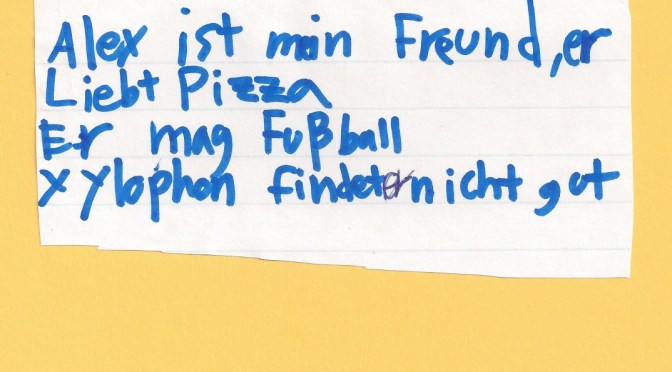 Alex ist min Freund, er
Liebt Pizza
Er mag Fußball
Xylophon findet er nicht gut